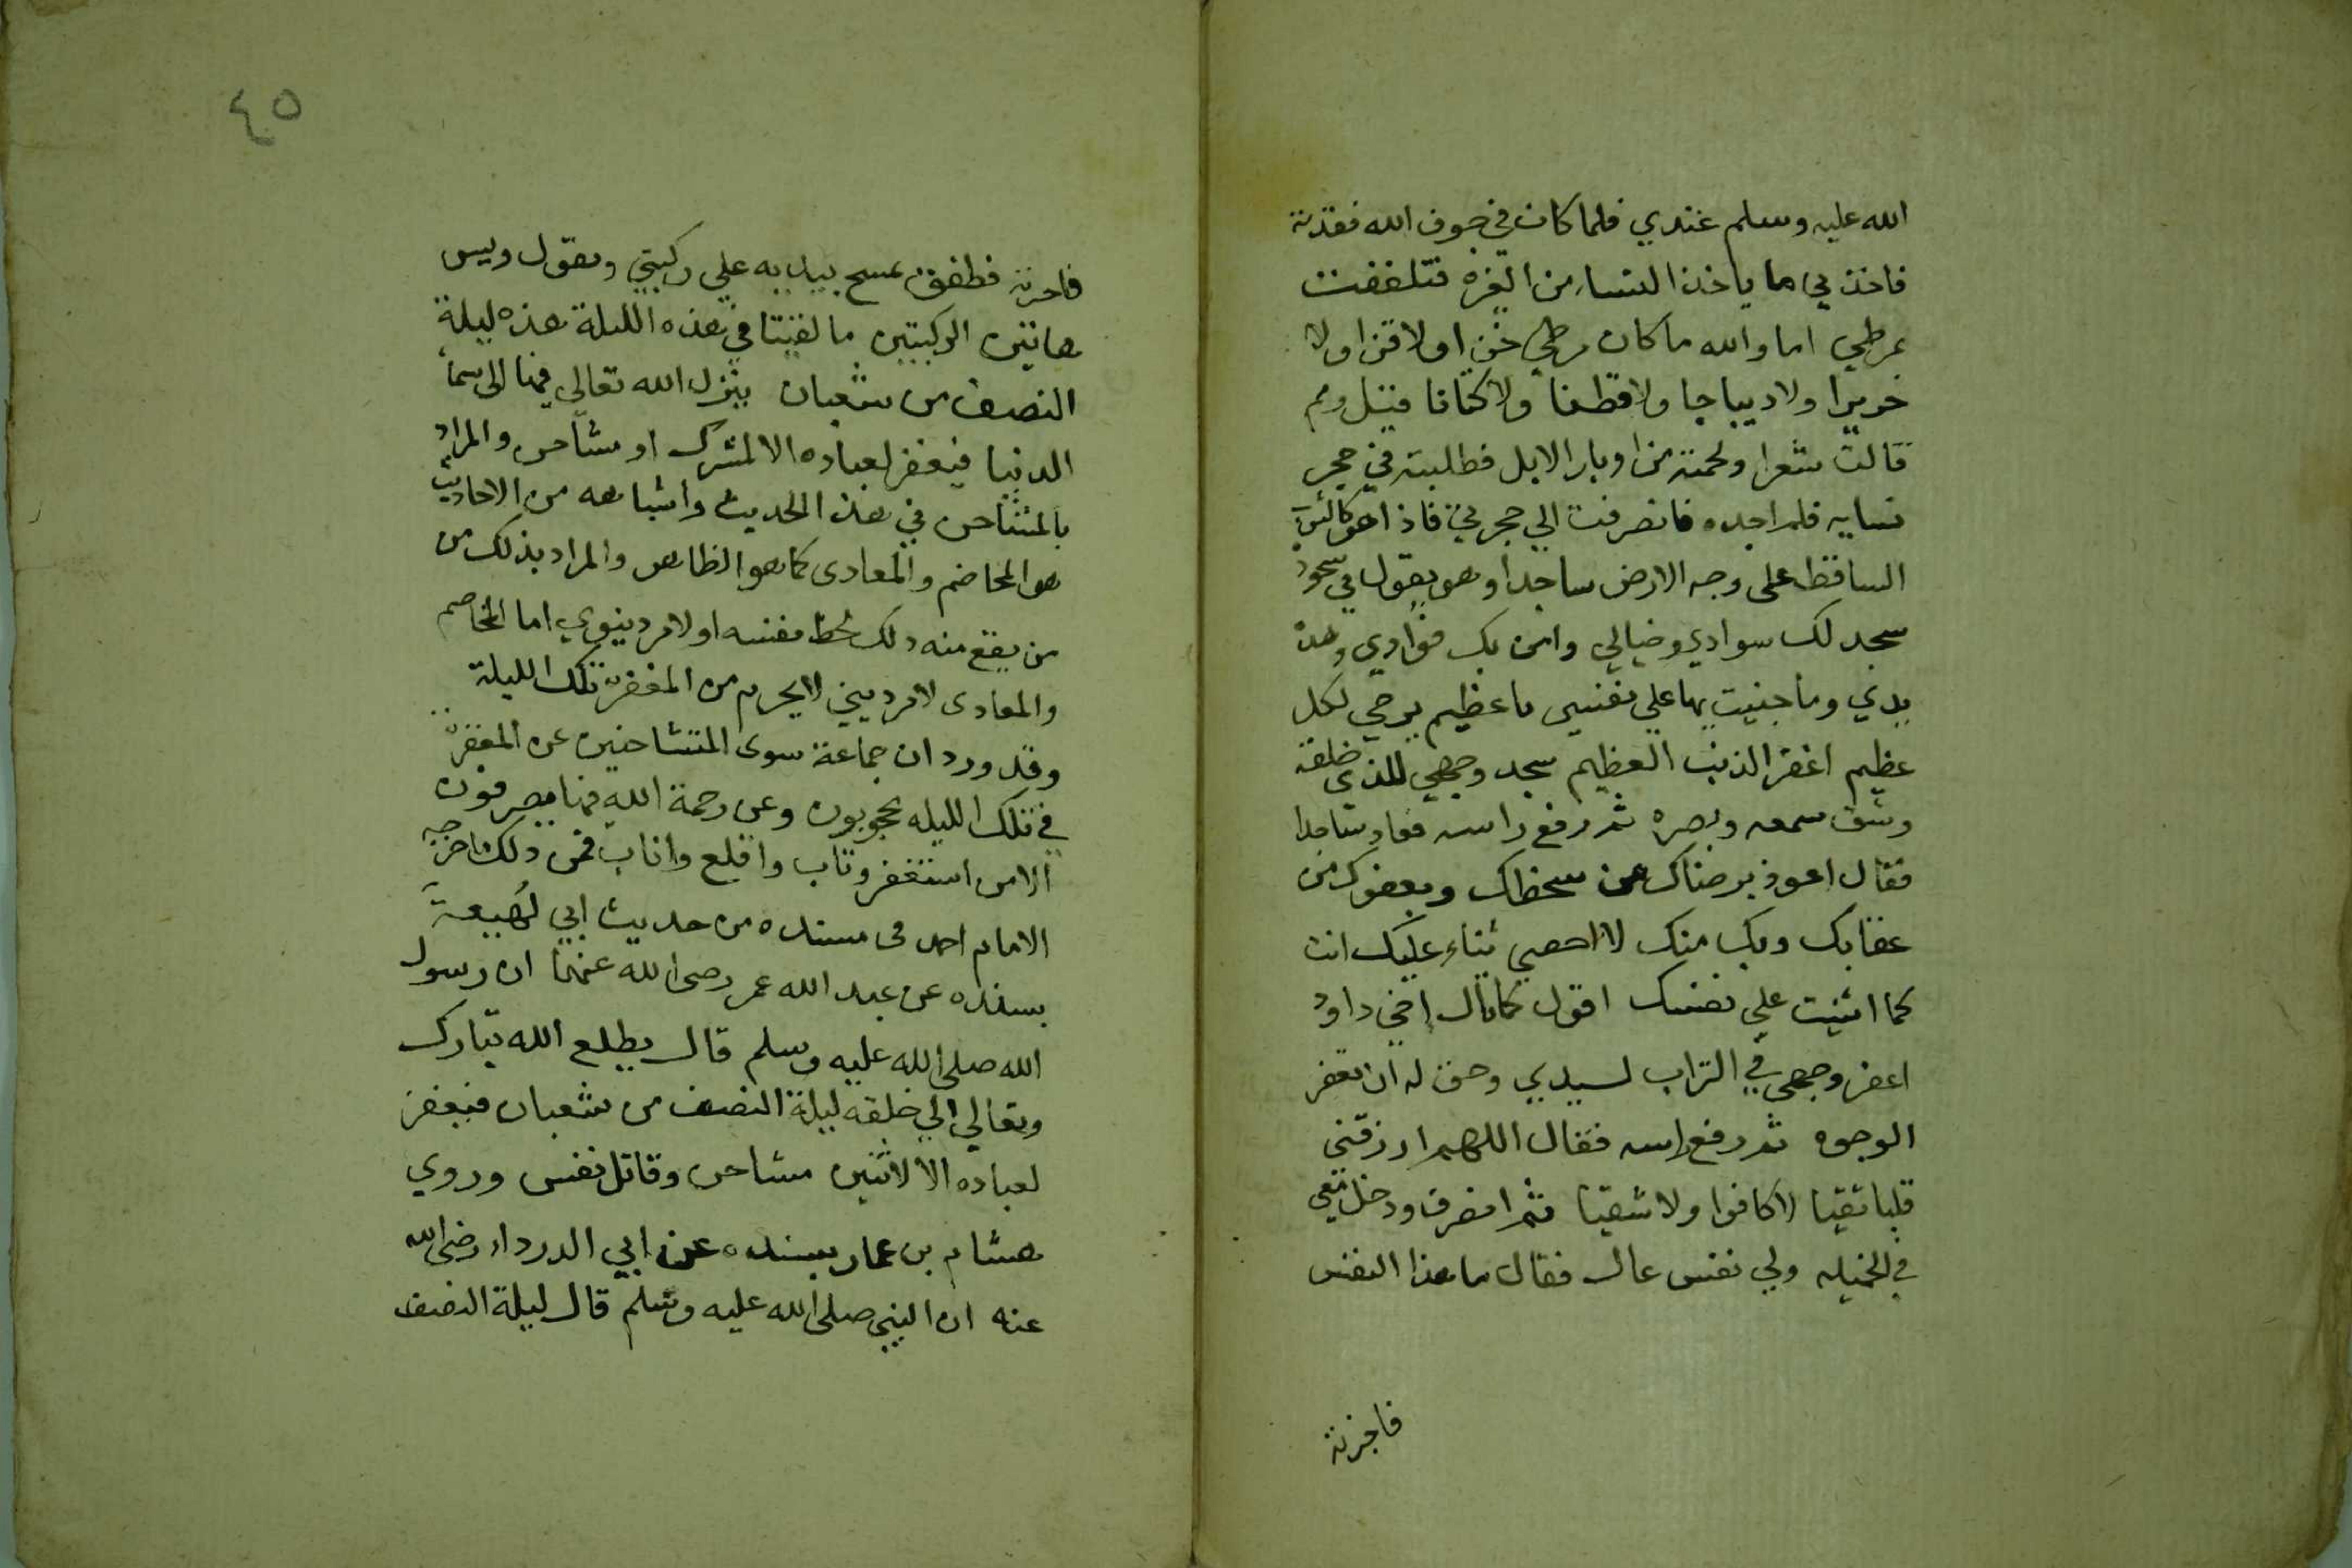 الله عليه وسلم عندي فلما كان في جوف الله فقدته
فاخذني ما ياخذ النساء من الغيرة فتلففت
بمرطي اما والله ما كان مرطي خز اولا قز اولا
حريرا ولا ديباجا ولا قطنا ولا كتانا قيل ومم
قالت شعرا ولحمته من اوبار الابل فطلبته في حجر
نسايه فلم اجده فانصرفت الي حجرتي فاذا هو كالثوب
الساقط على وجه الارض ساجدا وهو يقول في سجوده
سجد لك سوادي وخيالي وامن بك فوادي وهذه
يدي وما جنيت بها علي نفسي يا عظيم يرجي لكل
عظيم اغفر الذنب العظيم سجد وجهي للذي خلقه
وشق سمعه وبصره ثم رفع راسه فعاد ساجدا
فقال اعوذ برضاك من سخطك وبعفوك من
عقابك وبك منك لا احصي ثناء عليك انت
كما اثنيت علي نفسك اقول كما قال اخي داود
اعفر وجهي في التراب لسيدي وحق له ان تعفر
الوجوه ثم رفع راسه فقال اللهم ارزقني
قلبا تقيا لا كافرا ولا شقيا ثم انصرف ودخل معي
في الخميله ولي نفس عال فقال ما هذا النفس
فاخبرته
٤٥
فاخبرته فطفق يمسح بيديه علي ركبتي ويقول ويس
هاتين الركبتين ما لقيتا في هذه الليلة هذه ليلة
النصف من شعبان ينزل الله تعالي فيها الى سما
الدنيا فيغفر لعباده الا لمشرك او مشاحن والمراد
بالمشاحن في هذا الحديث واشباهه من الاحاديث
هو المخاصم والمعادى كما هو الظاهر والمراد بذلك من
من يقع منه ذلك لحظ نفسه او لامر دينوي اما المخاصم
والمعادى لامر ديني لا يحرم من المغفرة تلك الليلة
وقد ورد ان جماعة سوى المتشاحنين عن المغفرة
في تلك الليله محجوبون وعن رحمة الله فيها مصرفون
الا من استغفر وتاب واقلع واناب فمن ذلك ما خرجه
الامام احمد فى مسنده من حديث ابي لهيعة
بسنده عن عبد الله عمر رضى الله عنهما ان رسول
الله صلى الله عليه وسلم قال يطلع الله تبارك
وتعالي الي خلقه ليلة النصف من شعبان فيغفر
لعباده الا لاثنين مشاحن وقاتل نفس وروي
هشام بن عمار بسنده عن ابي الدرداء رضى الله
عنه ان النبي صلى الله عليه وسلم قال ليلة النصف